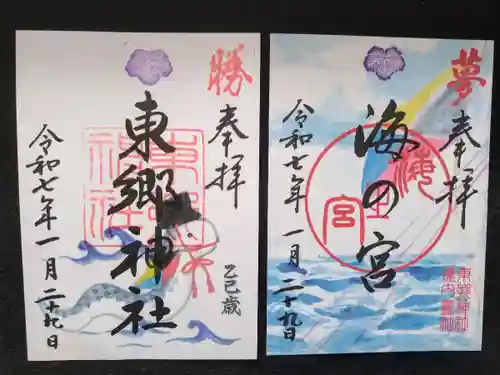 勝
奉拝
東郷神社
令和七年一月二十九日
乙巳歳
夢
奉拝
海の宮
令和七年一月二十九日
東郷神社
境内霊社